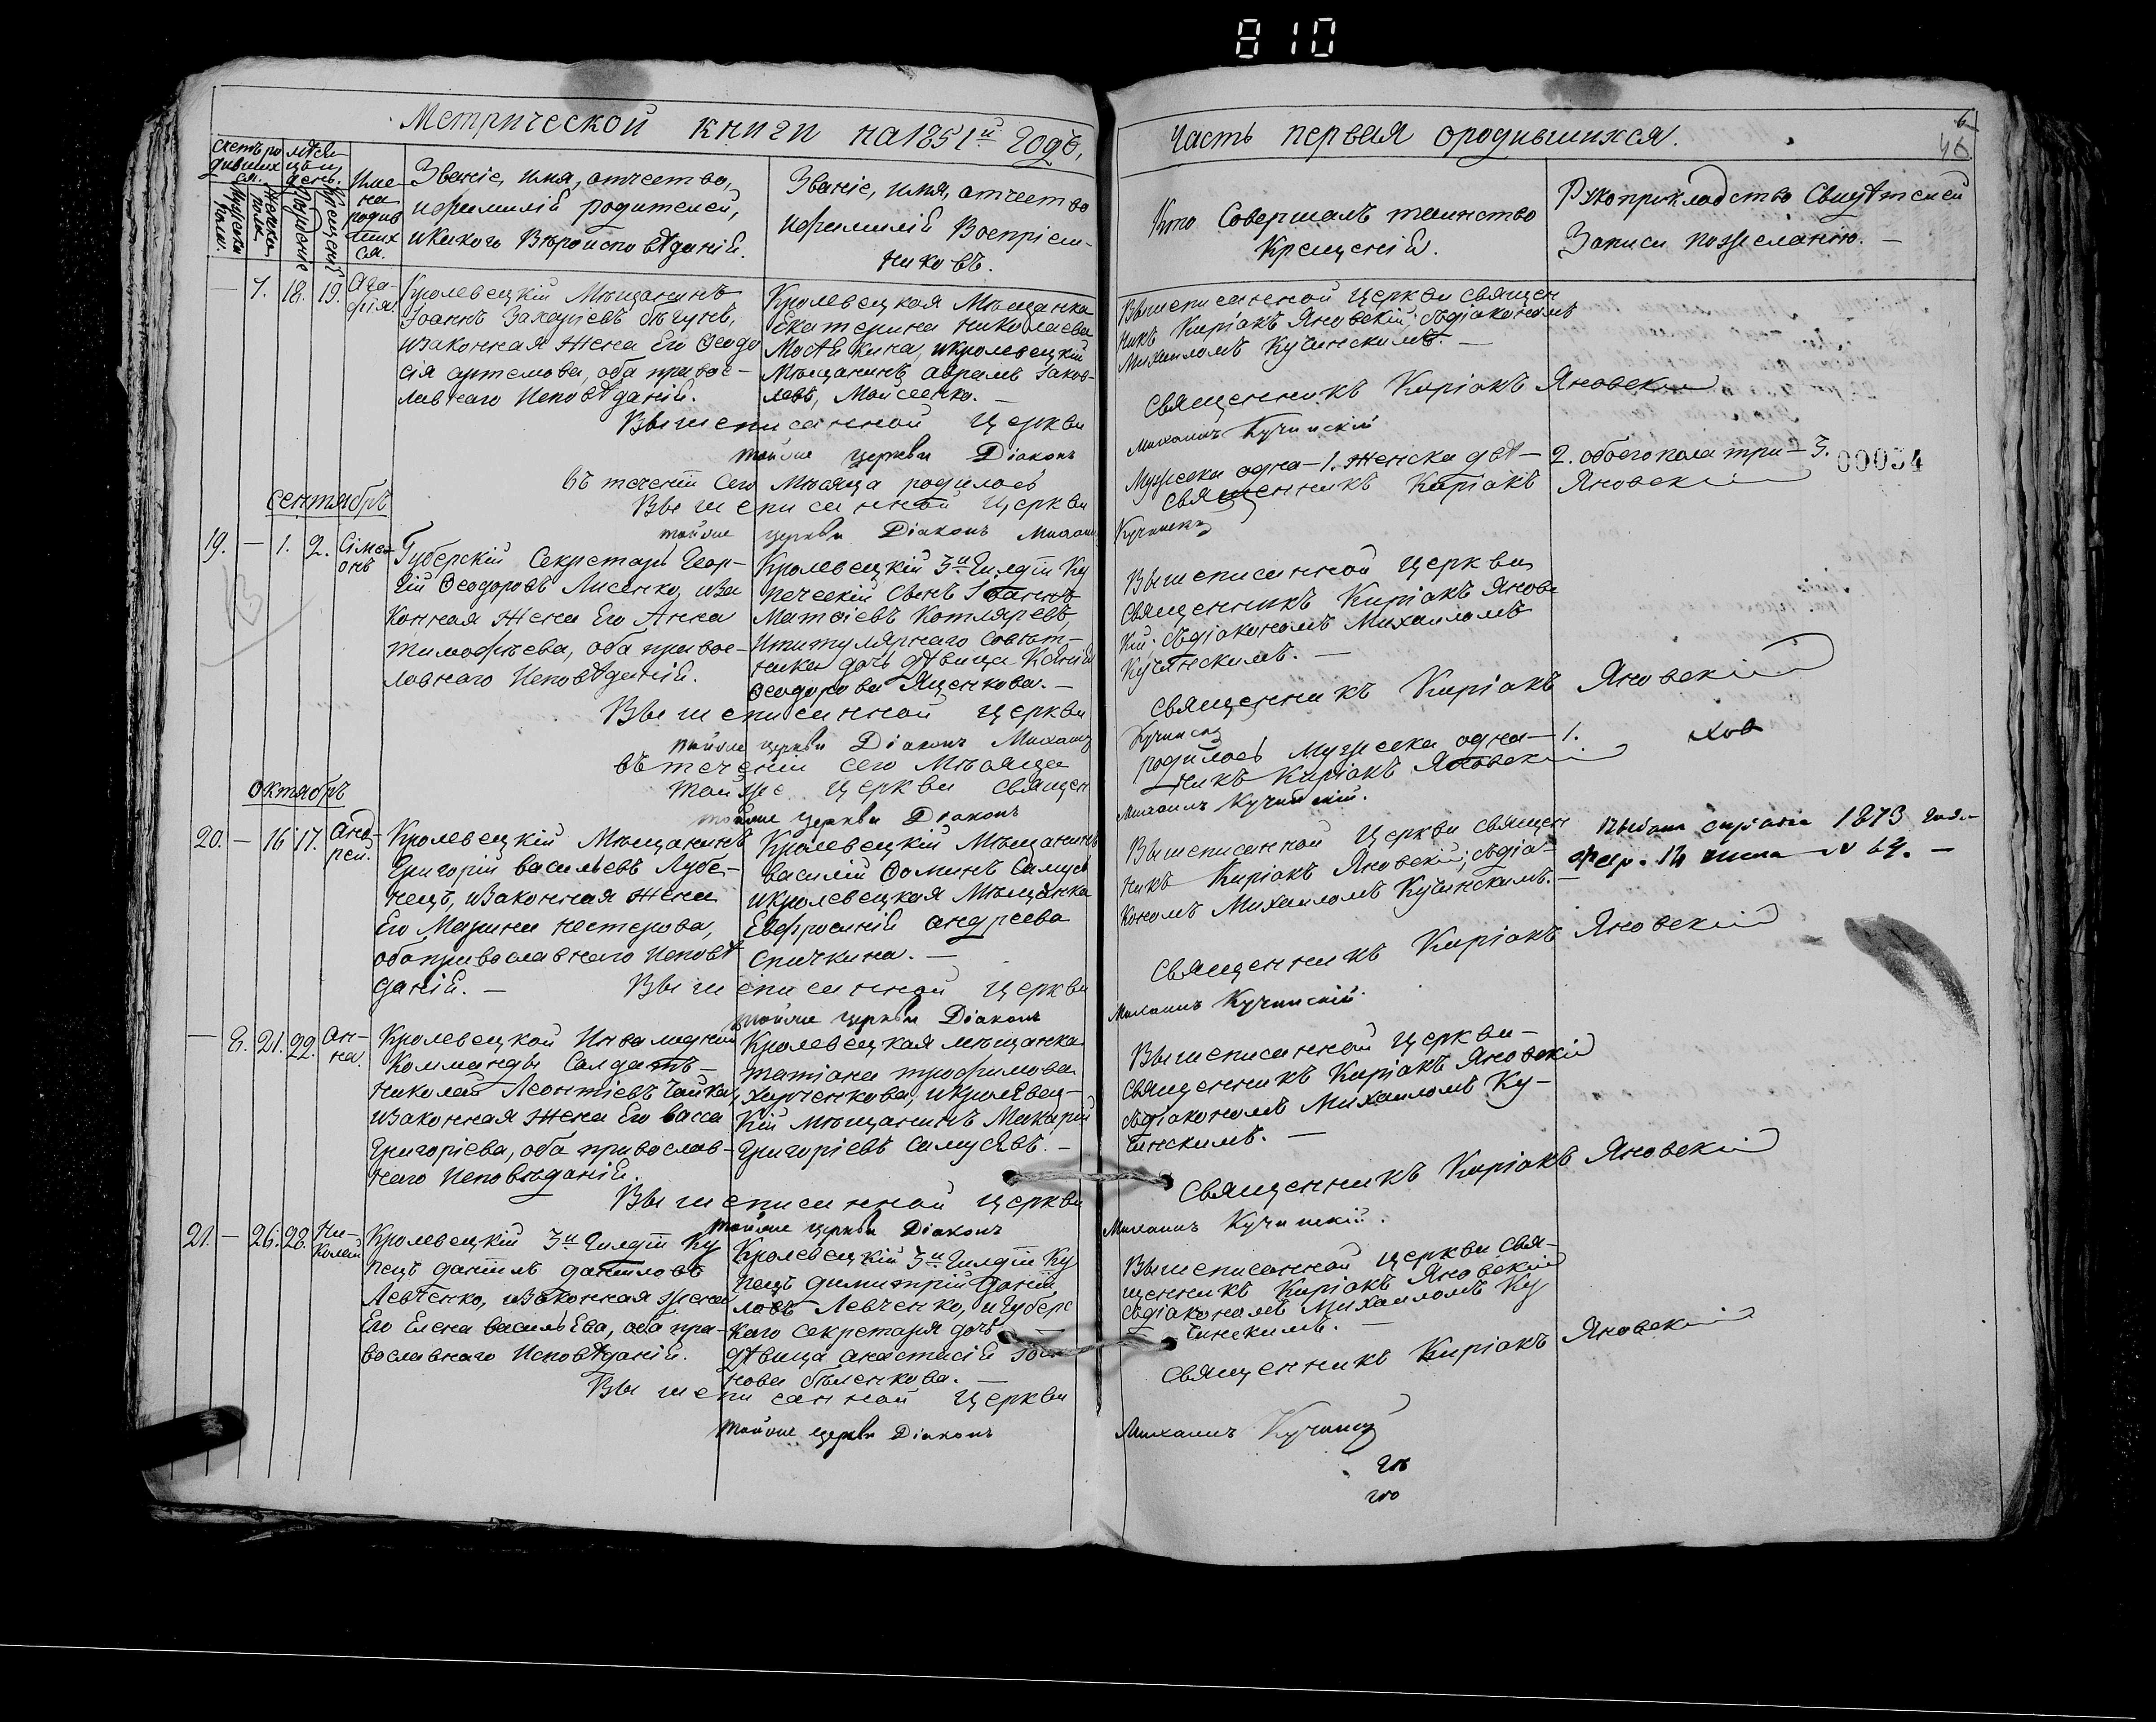 810
Метрической книги на 1851й Годъ,
Часть первая ородившихся.
6
46
счетъ родившихся.
мѣсяцъ и день.
Мужеска полу.
Женска полу.
Рожденіе
Крещеній
Имена родившихся.
Званіе, имя, отчество,
ифамилій родителей,
икакого Вѣроисповѣданій.
Званіе, имя, отчество
ифамилій Воспріем-
никовъ.
Кто Совершалъ таинство
Крещеній.
Рукоприкладство Свидѣтелей
Записи пожеланію. —
— 7. 18. 19. Ага-
фія
Кролевецкій Мѣщанинъ
Іоаннъ Захаріевъ бѣгунъ,
изаконная Жена Его Ѳеодо
сія артемова, оба правос-
лавнаго Исповѣданій.
Кролевецкая Мѣщанка
Екатерина николаева
Мостѣкина, икролевецкій
Мѣщанинъ аврамъ Іаков-
левъ, Мойсеенко. —
Вышеписанной Церкви священ
никъ Киріакъ Яновскій; съдіакономъ
Михаиломъ Кучинскимъ. —
Вышеписанной Церкви
священникъ Киріакъ Яновскій
тойже церкви Діаконъ
Михаилъ Кучинскій
въ теченіи Сего Мѣсяца родилось
Мужеска одна—1. Женска двѣ— 2. обоего пола три— 3.
00054
Вышеписанной Церкви
священникъ Киріакъ Яновскій
сентябрь
тойже церкви Діаконъ Михаилъ
Кучинскій
19. — 1. 2. Сімео-
онъ
Губерскій Секретарь Геор-
гій Ѳеодоровъ Лисенко, иза
Конная Жена Его Анна
тимофѣева, оба правос-
лавнаго Исповѣданій.
Кролевецкій 3й Гилдіи Ку
печескій Сынъ Іоаннъ
Матѳіевъ Котляревъ,
Ититулярнаго Совѣт-
ника дочь дѣвица
Ѳеодорова Яценкова. —
Вышеписанной Церкви
священникъ Киріакъ Яновс
кій; съдіакономъ Михаиломъ
Кучинскимъ. —
Вышеписанной Церкви
священникъ Киріакъ Яновскій
тойже церкви Діаконъ Михаилъ
Кучинскій
въ теченіи сего Мѣсяца
родилось Мужеска одна— 1.
тойже Церкви священ
никъ Киріакъ Яновскій
октябрь
тойже церкви Діаконъ
Михаилъ Кучинскій.
20. — 16 17. Анд-
рей.
Кролевецкій Мѣщанинъ
Григорій васильевъ Лубе-
нецъ, изаконная Жена
Его Марина нестерова,
оба православнаго Исповѣ
даній. —
Кролевецкій Мѣщанинъ
василій Ѳоминъ Самусь
икролевецкая Мѣщанка
Евфросиній андреева
спичкина. —
Вышеписанной Церкви священ
никъ Киріакъ Яновскій; съдіа-
кономъ Михаиломъ Кучинскимъ. —
Выдана справка 1873 года
Февр. 14 числа № 69. —
Вышеписанной Церкви
священникъ Киріакъ Яновскій
тойже церкви Діаконъ
Михаилъ Кучинскій
— 8. 21. 22. Ан-
на.
Кролевецкой Инвалидной
Комманды Салдатъ —
николай Леонтіевъ Чайка,
изаконная Жена Его васса
Григоріева, оба православ-
наго Исповѣданій.
Кролевецкая мѣщанка
татіана трофимова
харченкова, икролевец-
кій мѣщанинъ Макарій
Григоріевъ Самусевъ. —
Вышеписанной Церкви —
священникъ Киріакъ Яновскій
съдіакономъ Михаиломъ Ку-
чинскимъ. —
Вышеписанной Церкви
священникъ Киріакъ Яновскій
тойже церкви Діаконъ
Михаилъ Кучинскій.
21. — 26. 28. Ни-
колай
Кролевецкій 3й Гилдіи Ку
пецъ даніилъ даниловъ
Левченко, изаконная жена
Его Елена васильева, оба пра-
вославнаго Исповѣданій.
Кролевецкій 3й Гилдіи Ку
пецъ димитрій Даній
ловъ Левченко, игуберс
каго секретаря дочь —
дѣвица анастасій Іоан
нова бѣленкова. —
Вышеписанной Церкви свя-
щенникъ Киріакъ Яновскій
съдіакономъ Михаиломъ Ку
чинскимъ. —
Вышеписанной Церкви
священникъ Киріакъ Яновскій
тойже церкви Діаконъ
Михаилъ Кучинскій